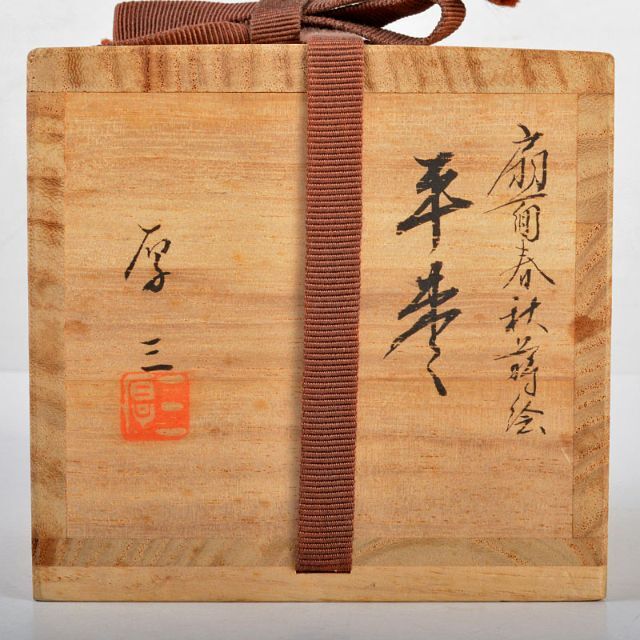 扇面春秋蒔絵
平棗
厚三